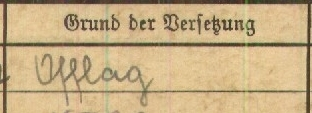 Grund der Versetzung
Offlag